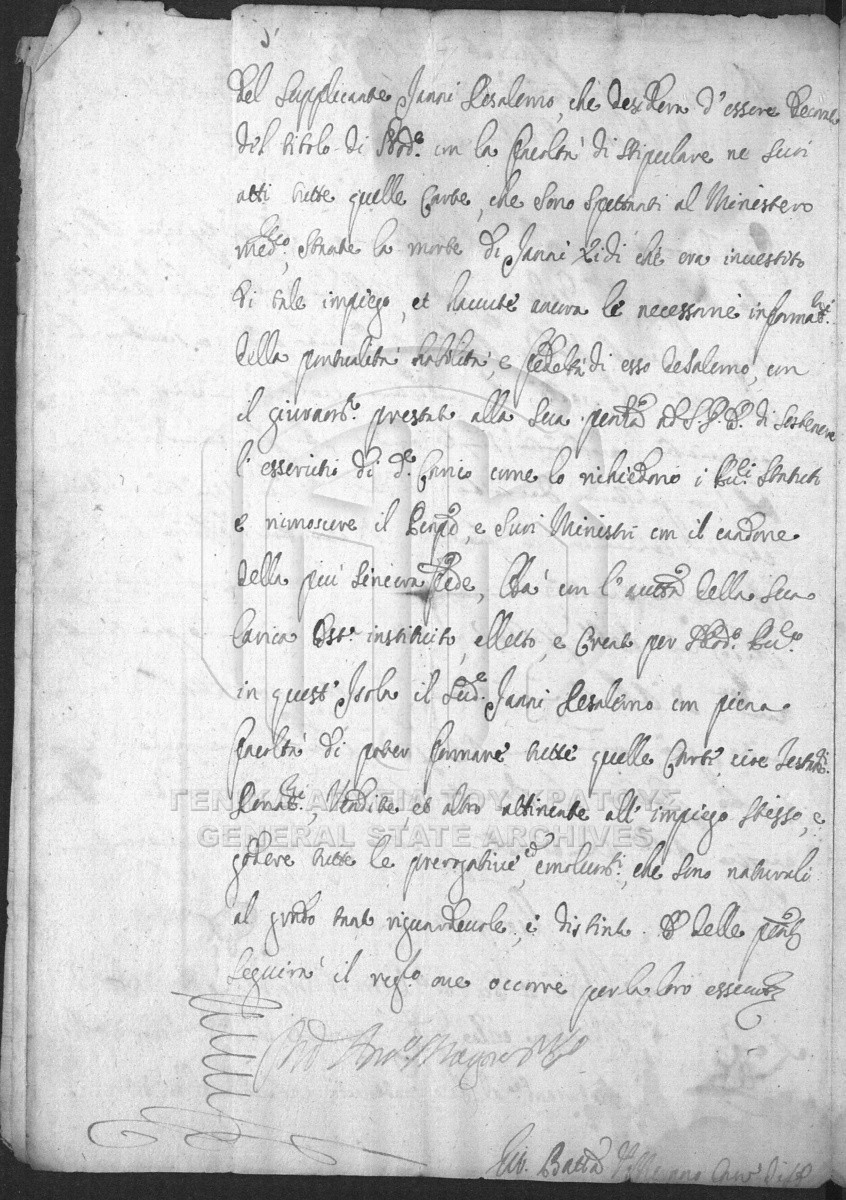 del supplicante Janni Desalerno, che desidera d'essere decorato
del titolo di Nod.º con la facoltà di stipulare ne suoi
atti tutte quelle Carte, che sono spettanti al Ministero
med.mo, stante la morte di Janni Xidi che era investito
di tale impiego, et havute ancora le necessarie informat.ni
della pontualità habilità, e fedeltà di esso deSalerno, con
il giuram.to prestato alla sua di sostenere
l'essercitio di d.º Carico come lo richiedono i Pu.ci Statuti
e riconoscere il e suoi Ministri con il candore
della più sincera fede, Ha con l'autt.à della sua
Carica instituito, elletto, e Creato per Nod.º Pu.co
in quest'Isola il sud.º Janni Desalerno con piena
facoltà di poter formare tutte quelle Carte, cioè Testam.ti
Donat.ni, Vendite et altro attinente all'impiego stesso, e
godere tutte le prerogative, ed emolum.ti, che sono naturali
al grado tanto riguardevole, e distinto. delle
seguirà il reg.to ove occorre per la loro essecut.ne
Gio. Batta
ΓΕΝΙΚΑ ΑΡΧΕΙΑ ΤΟΥ ΚΡΑΤΟΥΣ
GENERAL STATE ARCHIVES